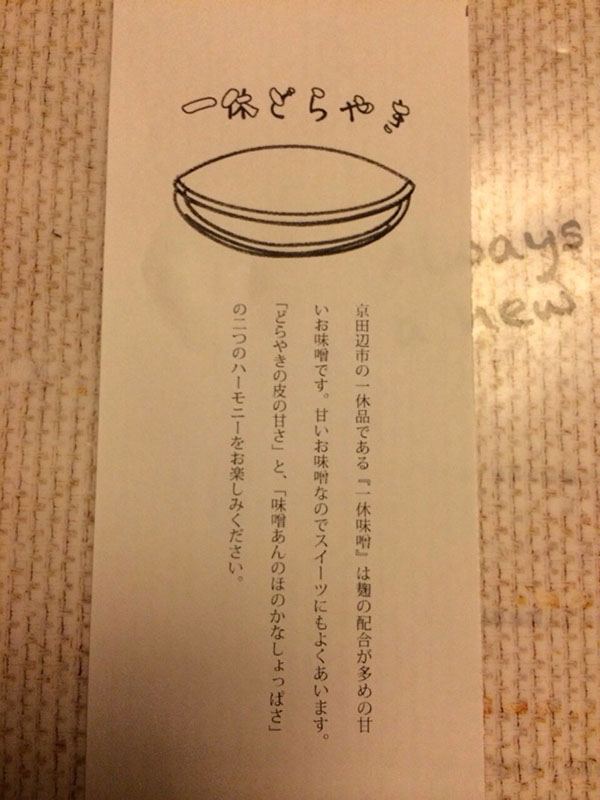 一休どらやき
京田辺市の一休品である『一休味噌』は麹の配合が多めの甘
いお味噌です。甘いお味噌なのでスイーツにもよくあいます。
「どらやきの皮の甘さ」と、「味噌あんのほのかなしょっぱさ」
の二つのハーモニーをお楽しみください。
new